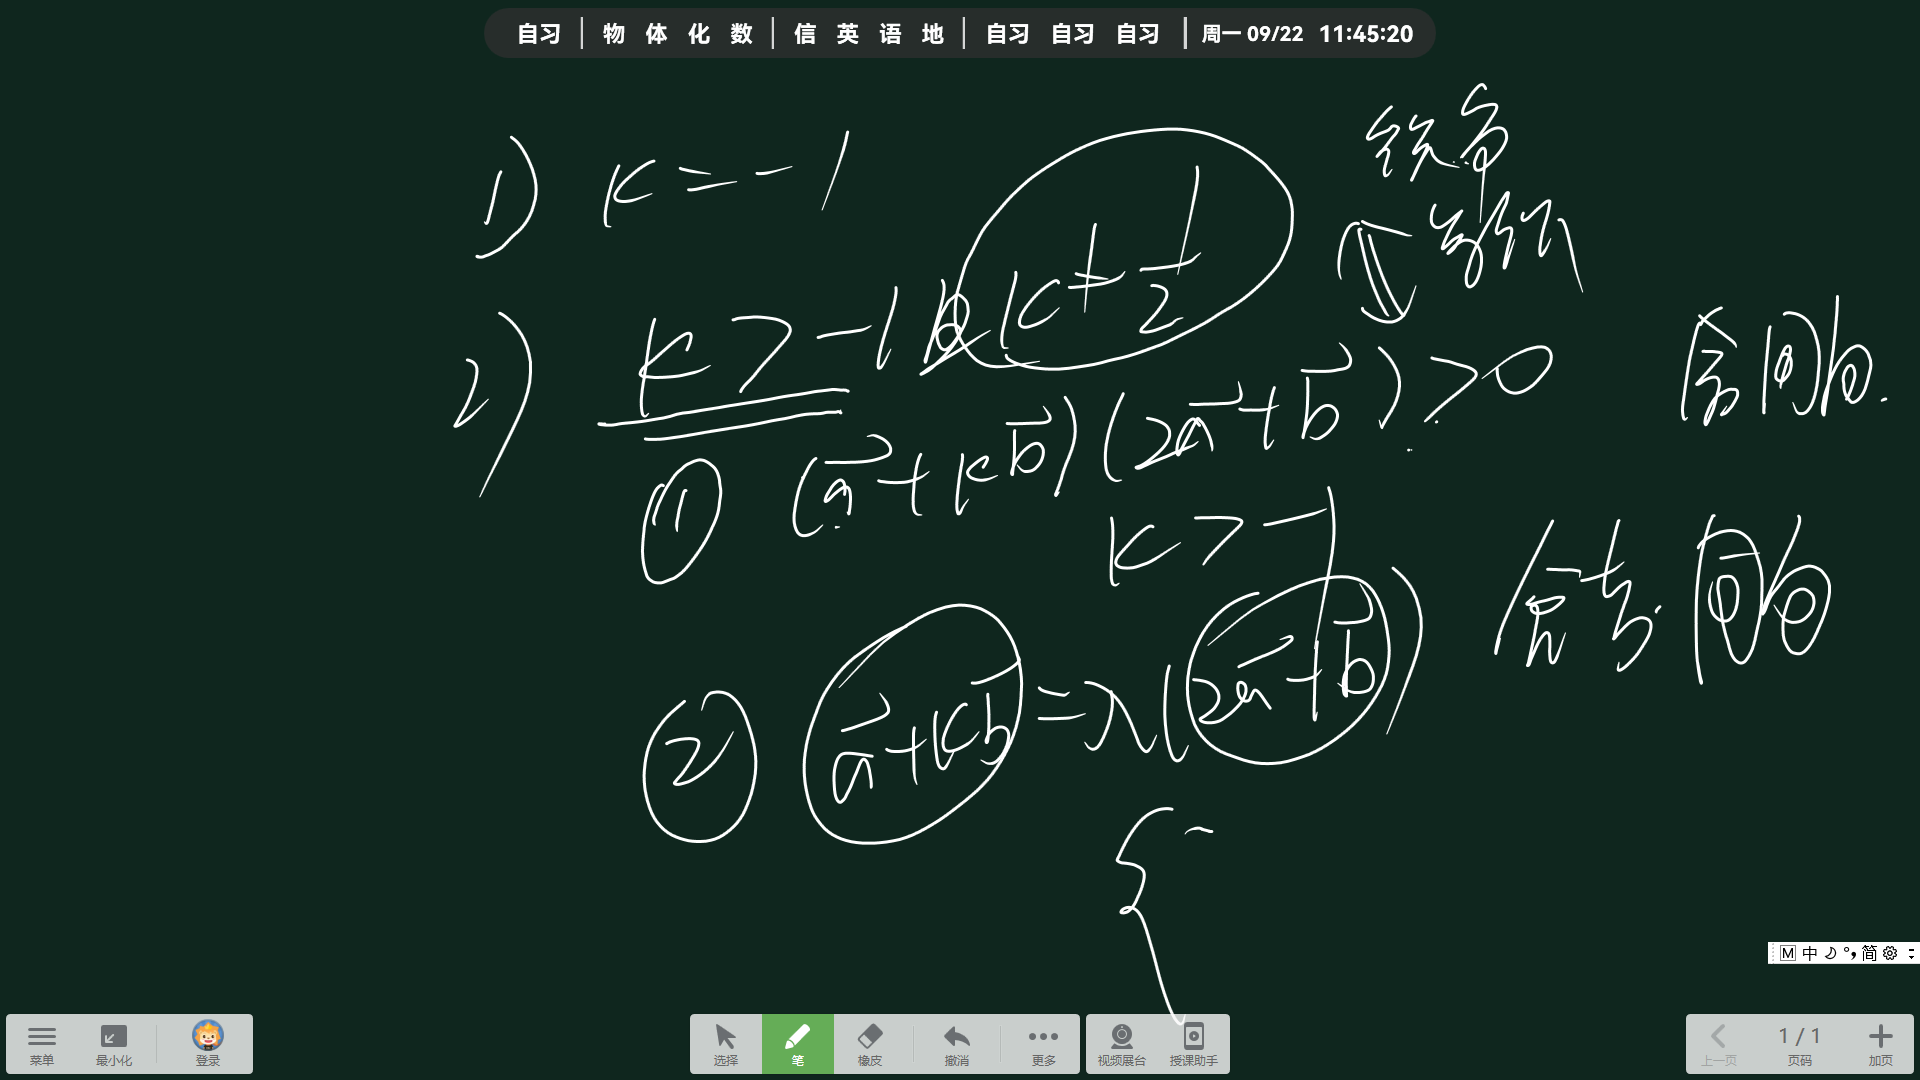 自习 | 物 体 化 数 | 信 英 语 地 | 自习 自习 自习 | 周一 09/22 11:45:20
1) k=-1
2) k>-1且k≠1/2
① (a⃗+kb⃗)(2a⃗+b⃗)>0
k>-1
② a⃗+kb⃗=λ(2a⃗+b⃗)
{
M 中 简
菜单 最小化 登录 选择 笔 橡皮 撤消 更多 视频展台 授课助手 上一页 1 / 1 页码 加页